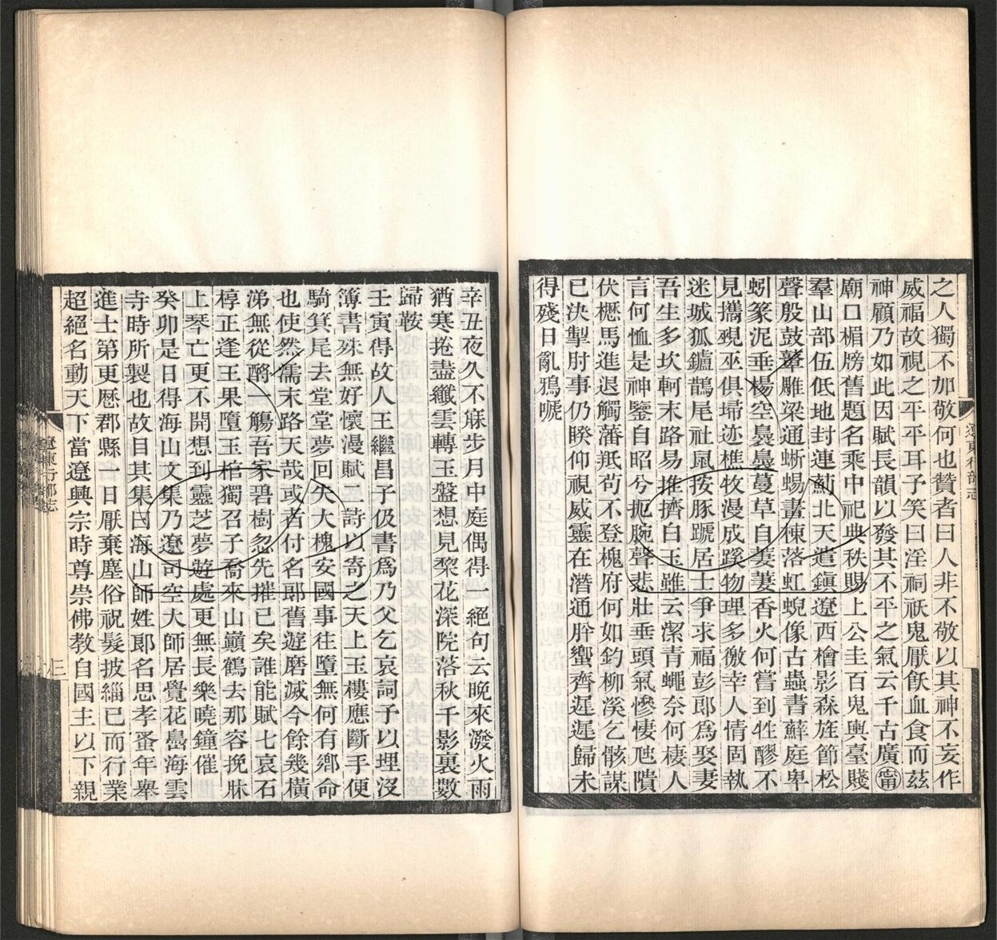 之人獨不加敬何也贊者曰人非不敬以其神不妄作
威福故視之平平耳子笑曰淫祠祇鬼厭飲血食而茲
神顧乃如此因賦長韻以發其不平之氣云千古廣甯
廟口楣牓舊題名乘中祀典秩賜上公圭百鬼輿臺賤
羣山部伍低地封連薊北天遣鎭遼西檜影森旌節松
聲殷鼓鼙雕梁通蜥蜴畫棟落虹蜺像古蟲書蘚庭卑
蚓篆泥垂楊空裊裊蔓草自萋萋香火何嘗到牲醪不
見攜覡巫俱埽迹樵牧漫成蹊物理多徼幸人情固執
迷城狐鑪鵲尾社鼠按豚蹏居士爭求福彭郎爲娶妻
吾生多坎軻末路易推擠白玉雖云潔青蠅奈何棲人
言何恤是神鑒自昭兮扼腕聲悲壯垂頭氣慘悽虺隤
伏櫪馬進退觸藩羝苟不登槐府何如釣柳溪乞骸謀
已決掣肘事仍睽仰視威靈在潛通肸蠁齊遲遲歸未
得殘日亂鴉嗁
遼東行部志
辛丑夜久不寐步月中庭偶得一絕句云晚來潑火雨
猶寒捲盡纖雲轉玉盤想見黎花深院落秋千影裏數
歸鞍
壬寅得故人王繼昌子伋書爲乃父乞哀詞予以埋沒
簿書殊無好懷漫賦二詩以寄之天上玉樓應斷手便
騎箕尾去堂堂夢回失大槐安國事往墮無何有鄉命
也使然儒末路天哉或者付名郎舊遊磨滅今餘幾橫
涕無從酹一觴吾家碧樹忽先摧已矣誰能賦七哀石
椁正逢王果墮玉棺獨召子喬來山巓鶴去那容挽牀
上琴亡更不開想到靈芝夢遊處更無長樂曉鐘催
癸卯是日得海山文集乃遼司空大師居覺花島海雲
寺時所製也故目其集曰海山師姓郎名思孝蚤年舉
進士第更歷郡縣一日厭棄塵俗祝髮披緇已而行業
超絕名動天下當遼興宗時尊崇佛教自國主以下親
遼東行部志
三